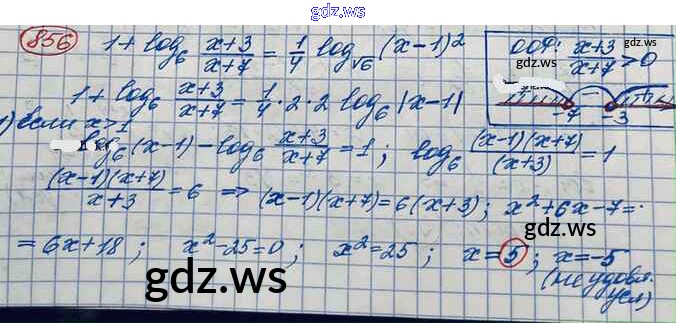 gdz.ws
856 1 + log₆ (x+3)/(x+7) = 1/4 log√₆ (x-1)²
ООФ: (x+3)/(x+7) > 0
+ - +
-7 -3
1 + log₆ (x+3)/(x+7) = 1/4 · 2 · 2 log₆ |x-1|
1) если x>1
log₆ (x-1) - log₆ (x+3)/(x+7) = 1 ; log₆ (x-1)(x+7)/(x+3) = 1
(x-1)(x+7)/(x+3) = 6 ⇒ (x-1)(x+7) = 6(x+3) ; x²+6x-7 =
= 6x+18 ; x²-25=0 ; x²=25 ; x=5 ; x=-5
(не удовл.
усл)
gdz.ws
gdz.ws
gdz.ws
gdz.ws